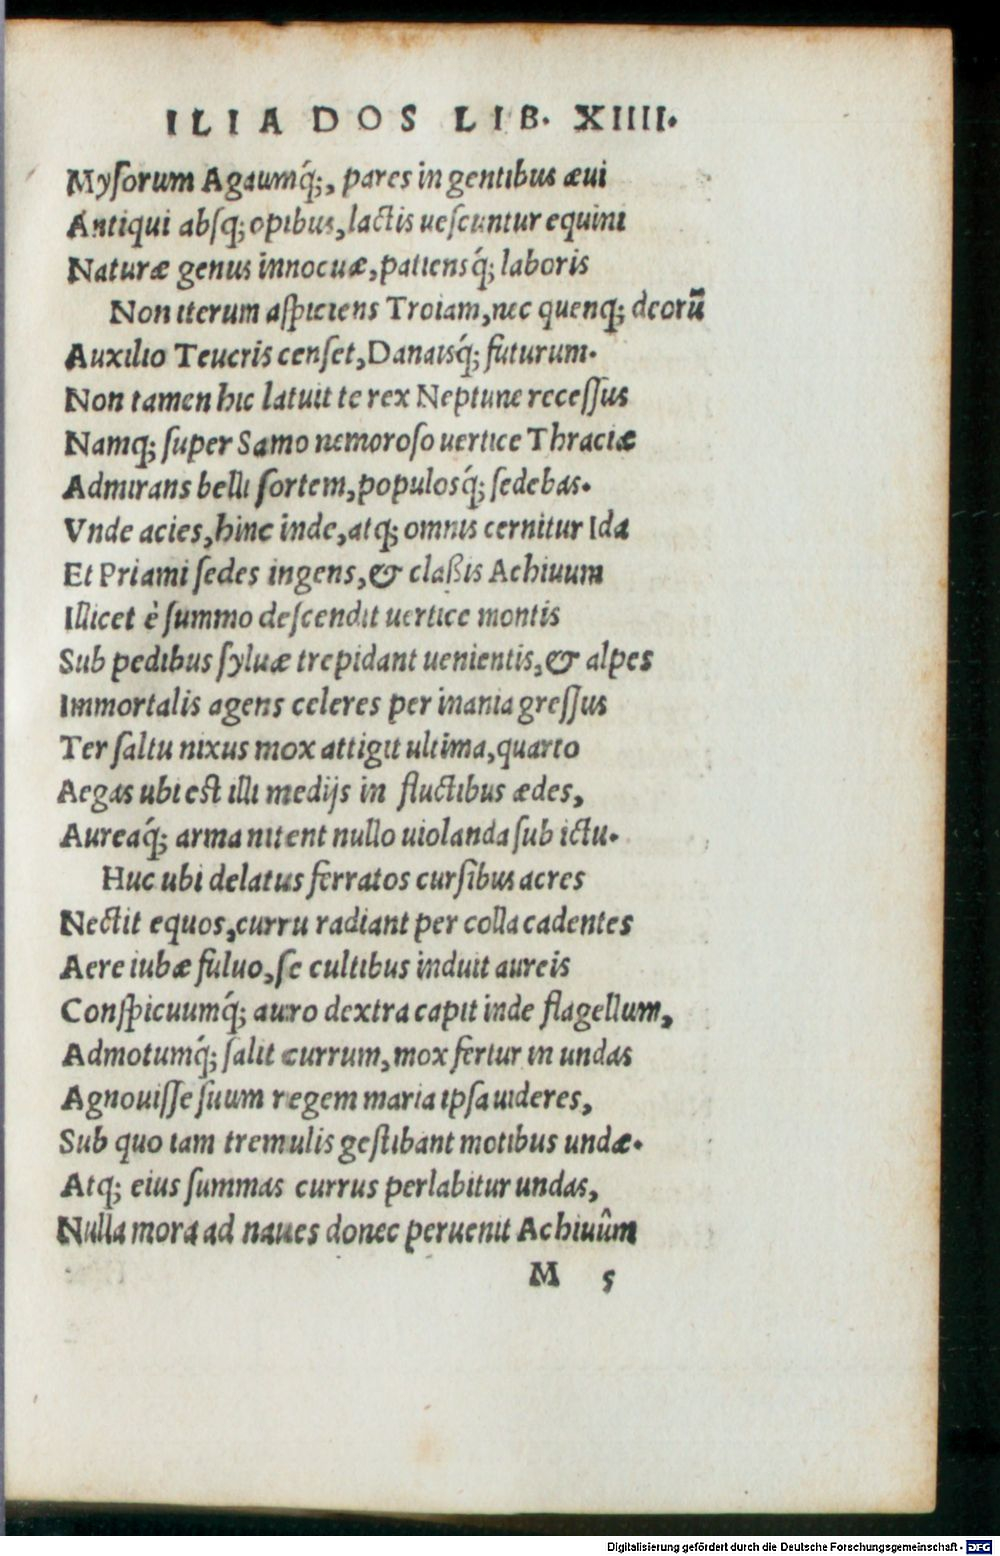 ILIADOS LIB. XIIII.
Myſorum Agaumq́;, pares in gentibus æui
Antiqui abſq; opibus, lactis ueſcuntur equini
Naturæ genus innocuæ, patiensq́; laboris
Non iterum aſpiciens Troiam, nec quenq; deorũ
Auxilio Teucris cenſet, Danaisq́; futurum.
Non tamen hic latuit te rex Neptune receſſus
Namq; ſuper Samo nemoroſo uertice Thraciæ
Admirans belli ſortem, populosq́; ſedebas.
Vnde acies, hinc inde, atq; omnis cernitur Ida
Et Priami ſedes ingens, & claßis Achiuum
Illicet è ſummo deſcendit uertice montis
Sub pedibus ſyluæ trepidant uenientis, & alpes
Immortalis agens celeres per inania greſſus
Ter ſaltu nixus mox attigit ultima, quarto
Aegas ubi est illi medijs in fluctibus ædes,
Aureaq́; arma nitent nullo uiolanda ſub ictu.
Huc ubi delatus ferratos curſibus acres
Nectit equos, curru radiant per colla cadentes
Aere iubæ fuluo, ſe cultibus induit aureis
Conſpicuumq́; auro dextra capit inde flagellum,
Admotumq́; ſalit currum, mox fertur in undas
Agnouiſſe ſuum regem maria ipſa uideres,
Sub quo iam tremulis geſtibant motibus undæ.
Atq; eius ſummas currus perlabitur undas,
Nulla mora ad naues donec peruenit Achiuûm
M 5
Digitalisierung gefördert durch die Deutsche Forschungsgemeinschaft - DFG